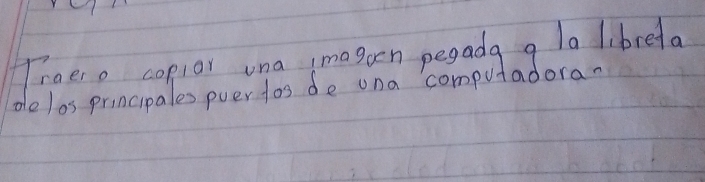 Traer o copiar una imagen pegada a la libreta
de los principales puertos de una computadora.